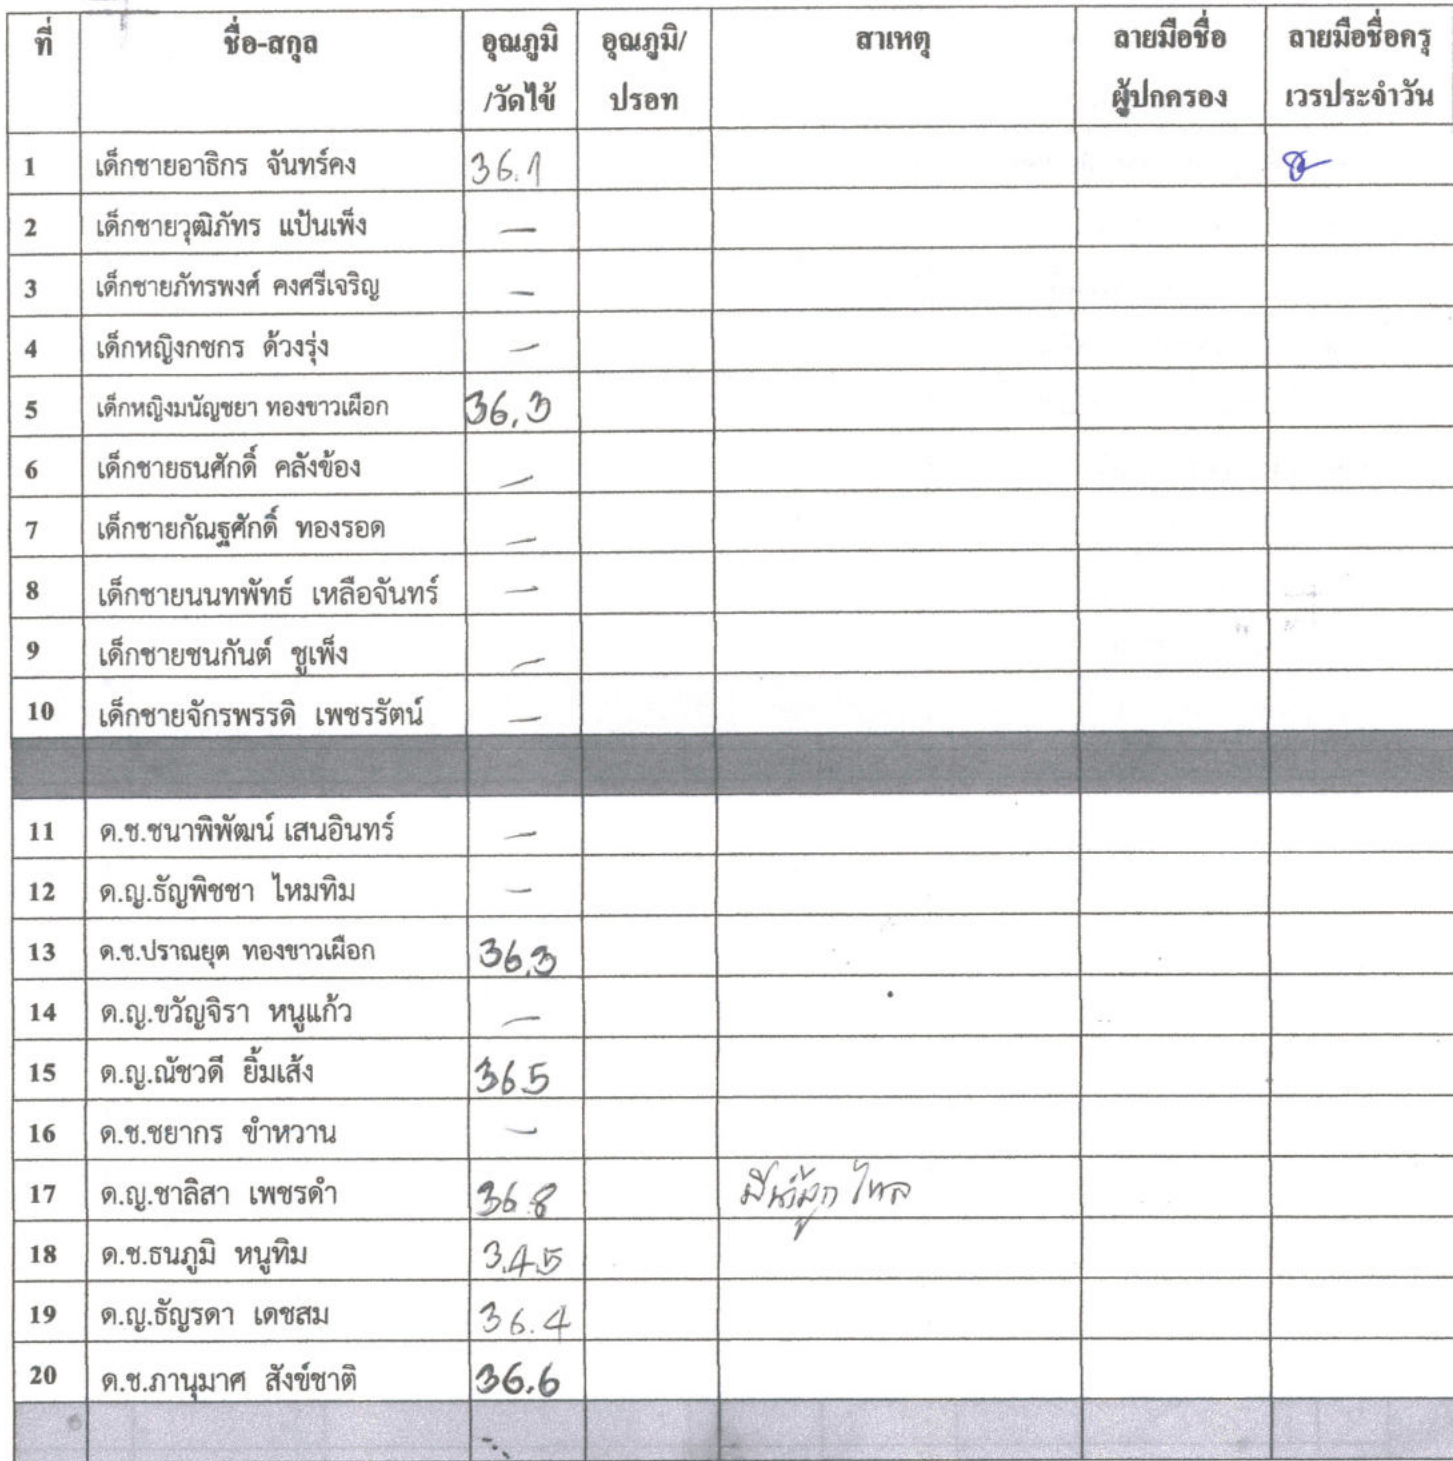 ที่ ชื่อ-สกุล อุณภูมิ/วัดไข้ อุณภูมิ/ปรอท สาเหตุ ลายมือชื่อผู้ปกครอง ลายมือชื่อครูเวรประจำวัน
1 เด็กชายอาธิกร จันทร์คง 36.1
2 เด็กชายวุฒิภัทร แป้นเพ็ง –
3 เด็กชายภัทรพงศ์ คงศรีเจริญ –
4 เด็กหญิงกชกร ด้วงรุ่ง –
5 เด็กหญิงมนัญชยา ทองขาวเผือก 36.3
6 เด็กชายธนศักดิ์ คลังข้อง –
7 เด็กชายกัณฐศักดิ์ ทองรอด –
8 เด็กชายนนทพัทธ์ เหลือจันทร์ –
9 เด็กชายชนกันต์ ชูเพ็ง –
10 เด็กชายจักรพรรดิ เพชรรัตน์ –
11 ด.ช.ชนาพิพัฒน์ เสนอินทร์ –
12 ด.ญ.ธัญพิชชา ไหมทิม –
13 ด.ช.ปราณยุต ทองขาวเผือก 36.3
14 ด.ญ.ขวัญจิรา หนูแก้ว –
15 ด.ญ.ณัชวดี ยิ้มเส้ง 36.5
16 ด.ช.ชยากร ขำหวาน –
17 ด.ญ.ชาลิสา เพชรดำ 36.8 มีน้ำมูกไหล
18 ด.ช.ธนภูมิ หนูทิม 3.4.5
19 ด.ญ.ธัญรดา เดชสม 36.4
20 ด.ช.ภานุมาศ สังข์ชาติ 36.6